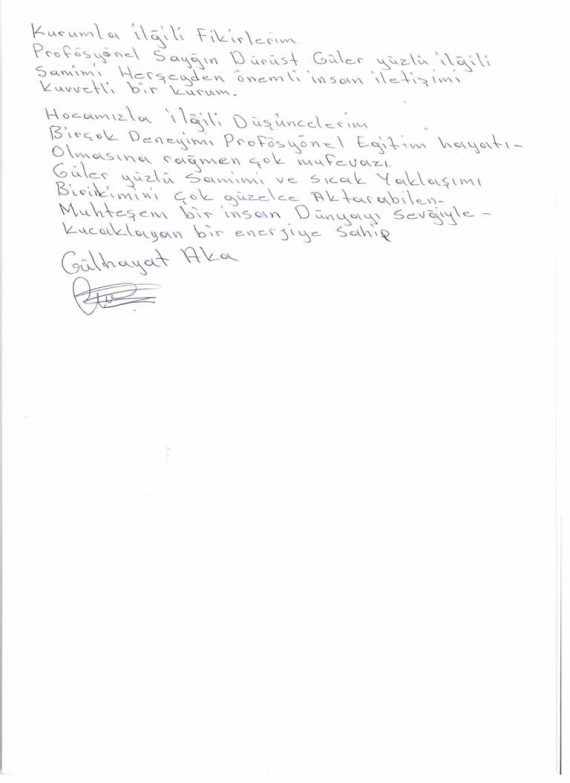 Kurumla ilğili Fikirlerim
Profösyönel Sayğın Dürüst Güler yüzlü ilğili
Samimi Herşeyden önemli insan iletişimi
kuvvetli bir kurum.
Hocamızla ilğili Düşüncelerim
Birçok Deneyimi Profösyönel Eğitim hayatı-
Olmasına rağmen çok mutevazı
Güler yüzlü Samimi ve sıcak Yaklaşımı
Birikimini çok güzelce Aktarabilen-
Muhteşem bir insan Dünyayı Sevğiyle -
Kucaklayan bir enerjiye Sahip
Gülhayat Aka